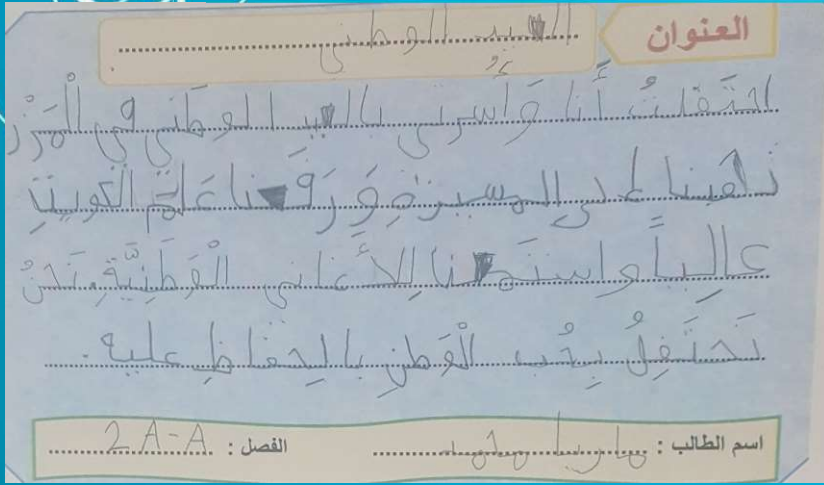 العنوان العيد الوطني
احتَفلتُ أَنا وَأُسرتي بالعيد الوطَني في الْمَزْر
ذَهَبنا إلى المسيرَةِ وَرَفَعنا عَلَمَ الكويتِ
عالِياً واستَمعنا لِلأَغاني الْوَطَنِيَّةِ. نَحْنُ
نَحتَفِلُ بِحُب الْوَطنِ بالحِفاظِ عليه.
اسم الطالب : ماريا محمد الفصل : 2A-A